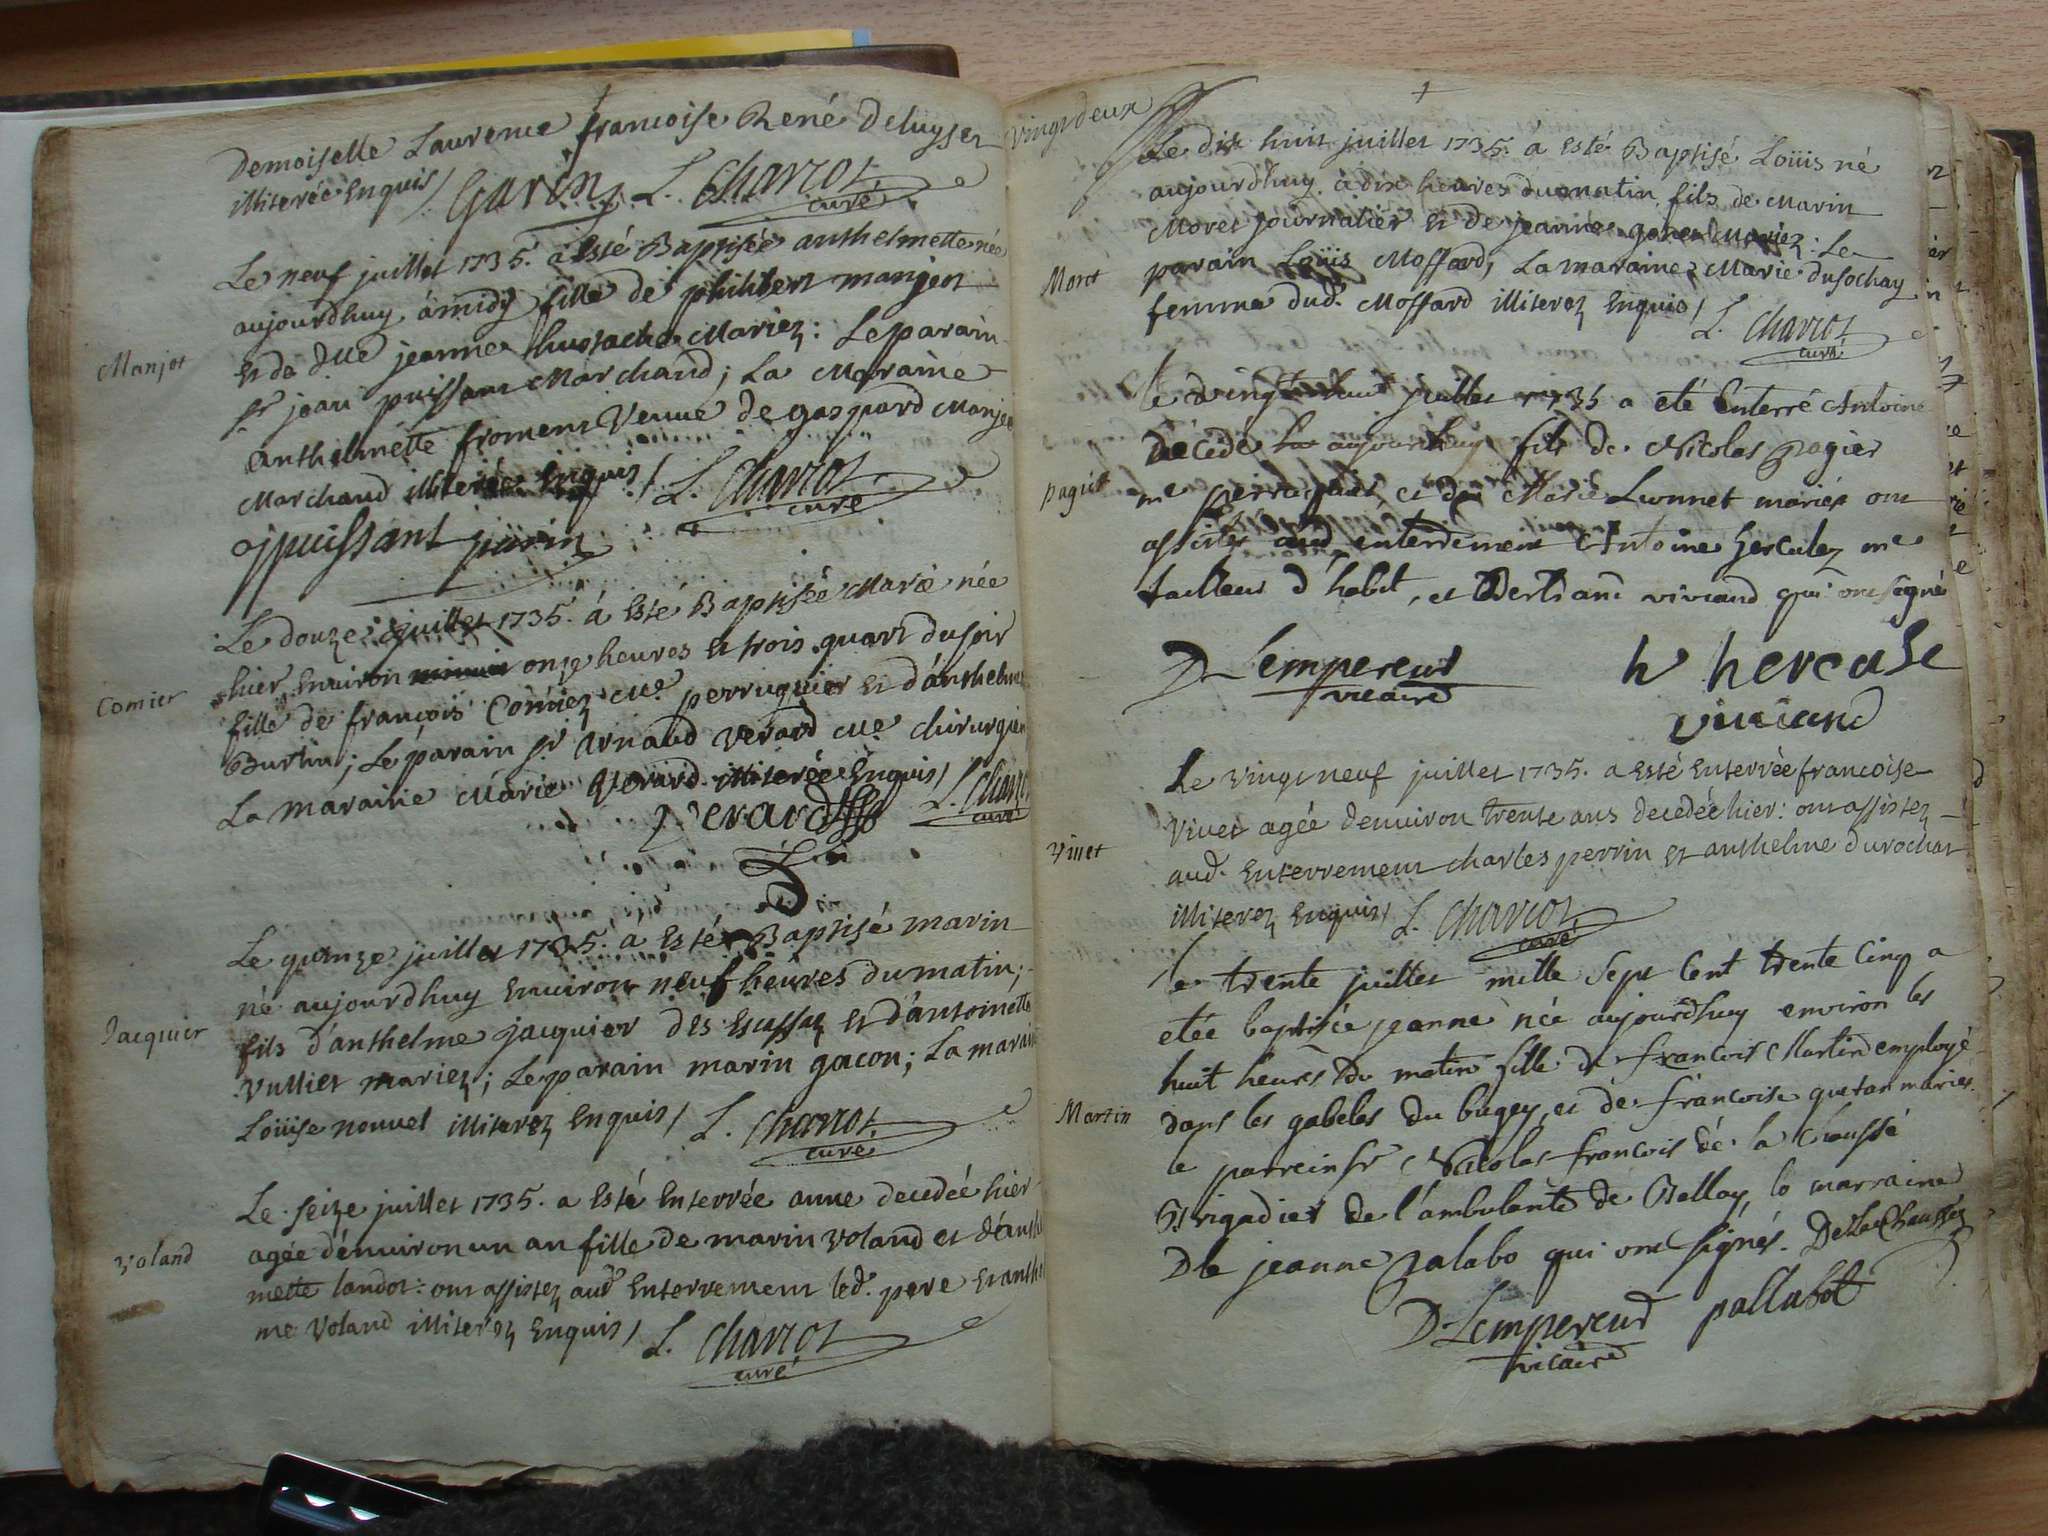 Demoiselle Laurence francoise René Deluyset
illiterée Enquis / Garin L. Charcot
curé
Le neuf juillet 1735. á Esté Baptisée anthelmette née
aujourdhuy á midy fille de philibert manjot
Et de dlle jeanne Mariez : Le parain
Manjot
Sr jean puissant Marchand ; La Maraine
anthelmette froment Veuve de gaspard Manjot
Marchand illiterée Enquis / L. Charcot
curé
jpuissant parin
Le douze juillet 1735. á Esté Baptisée Marie née
hier Environ onze heures Et trois quart du soir
Comier
fille de françois Comiez Me. perruquier Et d'anthelme
Burtin ; Le parain Sr Arnaud Verard Me. chirurgien
La maraine Marie Verard illiterée Enquis / L. Charcot
curé
Verard
Le quinze juillet 1735. á Esté Baptisé marin
né aujourdhuy Environ neuf heures du matin ;
Jacquier
fils d'anthelme jacquier des Escassaz Et d'antoinette
Vulliet mariez ; Le parain marin gacon ; La maraine
Loüise nouvel illiterez Enquis / L. Charcot
curé
Le seize juillet 1735. a Esté Enterrée anne decedée hier
agée d'environ un an fille de marin Voland et d'anthel
Voland
mette landot : ont assistez aud. Enterrement led. pere Et anthel
me Voland illiterez Enquis / L. Charcot
curé
vingt deux
Le dix huit juillet 1735. á Esté Baptisé Loüis né
aujourdhuy á dix heures du matin fils de Marin
Moret journalier Et de jeanne Mariez : Le
Moret
parain Loüis Moffard, La maraine Marie dusochay
femme dud. Moffard illiterez Enquis / L. Charcot
curé
le vingt huit juillet 1735 a eté Enterré Antoine
Décedé aujourdhuy fils de Nicolas Pagier
paguet
me perruquier et de Marie Lionnet mariés ont
assistés aud enterrement Antoine herculez me
tailleur d'habit, et Bertrand viviand qui ont signé
D Lempereur
vicaire
h hercule
viviand
Le vingt neuf juillet 1735. a Esté Enterrée francoise
Vivet agée denviron trente ans decedée hier : ont assistez
Vivet
aud. Enterrement charles perrin et anthelme durochat
illiterez Enquis / L. Charcot
curé
le trente juillet mille Sept Cent trente Cinq a
etée baptisée jeanne née aujourdhuy environ les
huit heures du matin fille de francois Martin employé
Martin
dans les gabeles du bugey, et de francoise quetan mariés
le parrein Sr Nicolas francois de la Chaussé
Brigadier de l'ambulante de Bellay, la marraine
Dlle jeanne Palabo qui ont signés. De la Chaussée
D Lempereur
vicaire
pallabot